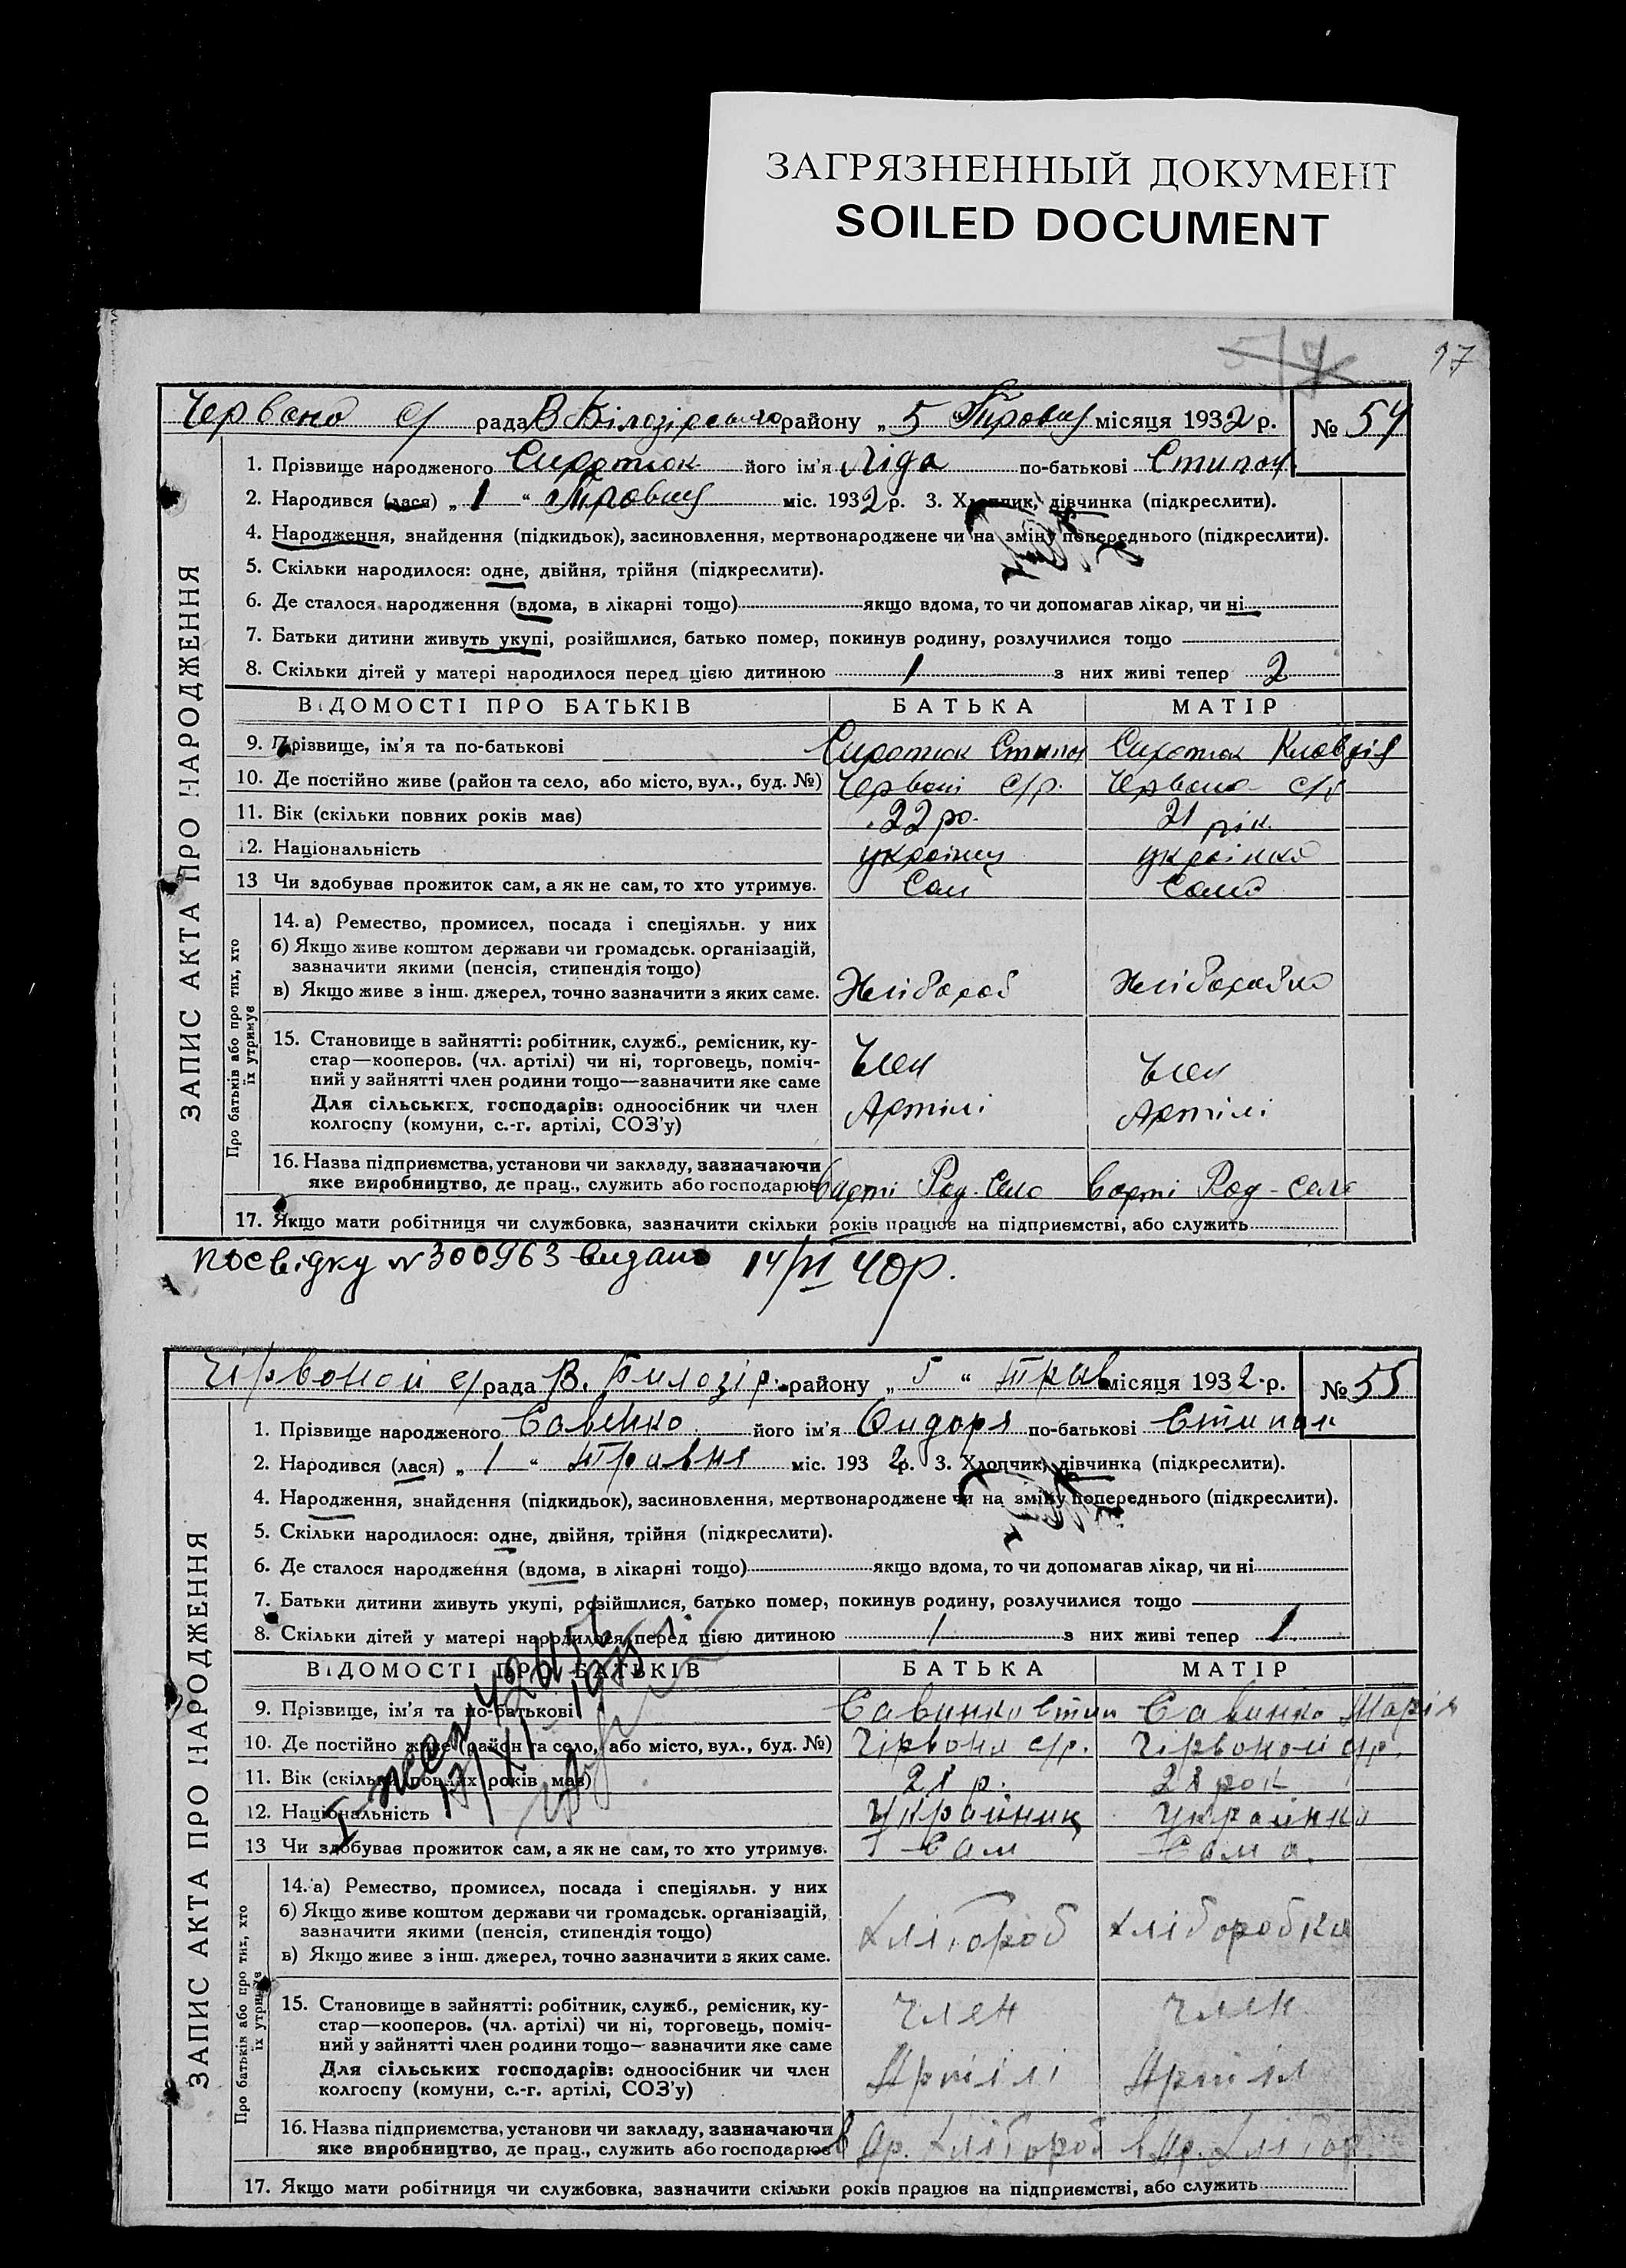 ЗАГРЯЗНЕННЫЙ ДОКУМЕНТ
SOILED DOCUMENT
97
рада В Білозірського району „ 5 місяця 1932 р. № 54
ЗАПИС АКТА ПРО НАРОДЖЕННЯ
1. Прізвище народженого Сиротюк його ім'я Ліда по-батькові Стипан
2. Народився (лася) „ 1 “ міс. 1932 р. 3. Хлопчик, дівчинка (підкреслити).
4. Народження, знайдення (підкидьок), засиновлення, мертвонароджене чи на зміну попереднього (підкреслити).
5. Скільки народилося: одне, двійня, трійня (підкреслити).
6. Де сталося народження (вдома, в лікарні тощо) якщо вдома, то чи допомагав лікар, чи ні
7. Батьки дитини живуть укупі, розійшлися, батько помер, покинув родину, розлучилися тощо
8. Скільки дітей у матері народилося перед цією дитиною 1 з них живі тепер 2
ВІДОМОСТІ ПРО БАТЬКІВ БАТЬКА МАТІР
9. Прізвище, ім'я та по-батькові Сиротюк Стипан Сиротюк Клавдія
10. Де постійно живе (район та село, або місто, вул., буд. №) Червоні с/р. Червона с/р
11. Вік (скільки повних років має) 22 ро. 21 рік.
12. Національність українец українка
13 Чи здобував прожиток сам, а як не сам, то хто утримує. Сам Сама
Про батьків або про тих, хто їх утримує
14. а) Ремество, промисел, посада і спеціяльн. у них
б) Якщо живе коштом держави чи громадськ. організацій,
зазначити якими (пенсія, стипендія тощо)
в) Якщо живе з інш. джерел, точно зазначити з яких саме. Хлібороб Хліборобка
15. Становище в зайнятті: робітник, служб., ремісник, ку-
стар—кооперов. (чл. артілі) чи ні, торговець, поміч-
ний у зайнятті член родини тощо—зазначити яке саме Член Член
Для сільських господарів: одноосібник чи член
колгоспу (комуни, с.-г. артілі, СОЗ'у) Артілі Артілі
16. Назва підприємства, установи чи закладу, зазначаючи
яке виробництво, де прац., служить або господарює Рад. Село Рад-село
17. Якщо мати робітниця чи службовка, зазначити скільки років працює на підприємстві, або служить
посвідку № 300963 видано 14/VI 40р.
рада В. Билозір. району „ 5 “ трав місяця 1932 р. № 55
ЗАПИС АКТА ПРО НАРОДЖЕННЯ
1. Прізвище народженого Савенко його ім'я по-батькові Стипан
2. Народився (лася) „ 1 “ травня міс. 1932 р. 3. Хлопчик, дівчинка (підкреслити).
4. Народження, знайдення (підкидьок), засиновлення, мертвонароджене чи на зміну попереднього (підкреслити).
5. Скільки народилося: одне, двійня, трійня (підкреслити).
6. Де сталося народження (вдома, в лікарні тощо) якщо вдома, то чи допомагав лікар, чи ні
7. Батьки дитини живуть укупі, розійшлися, батько помер, покинув родину, розлучилися тощо
8. Скільки дітей у матері народилося перед цією дитиною 1 з них живі тепер 1
ВІДОМОСТІ ПРО БАТЬКІВ БАТЬКА МАТІР
9. Прізвище, ім'я та по-батькові Савинко Стип Савинко Марія
10. Де постійно живе (район та село, або місто, вул., буд. №) Чірвони с/р. Чірвоной с/р.
11. Вік (скільки повних років має) 28 р. 28 рок
12. Національність Українец Українка
13 Чи здобував прожиток сам, а як не сам, то хто утримує. Сам Сама.
Про батьків або про тих, хто їх утримує
14. а) Ремество, промисел, посада і спеціяльн. у них
б) Якщо живе коштом держави чи громадськ. організацій,
зазначити якими (пенсія, стипендія тощо)
в) Якщо живе з інш. джерел, точно зазначити з яких саме. хлібороб хліборобка
15. Становище в зайнятті: робітник, служб., ремісник, ку-
стар—кооперов. (чл. артілі) чи ні, торговець, поміч-
ний у зайнятті член родини тощо—зазначити яке саме член член
Для сільських господарів: одноосібник чи член
колгоспу (комуни, с.-г. артілі, СОЗ'у) Артілі Артіли
16. Назва підприємства, установи чи закладу, зазначаючи
яке виробництво, де прац., служить або господарює в Ар. хлібороб в Ар. хлібор.
17. Якщо мати робітниця чи службовка, зазначити скільки років працює на підприємстві, або служить